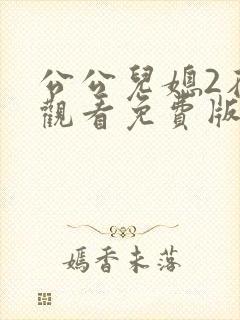 公公兒媳2
觀看免費版
嫣香未落